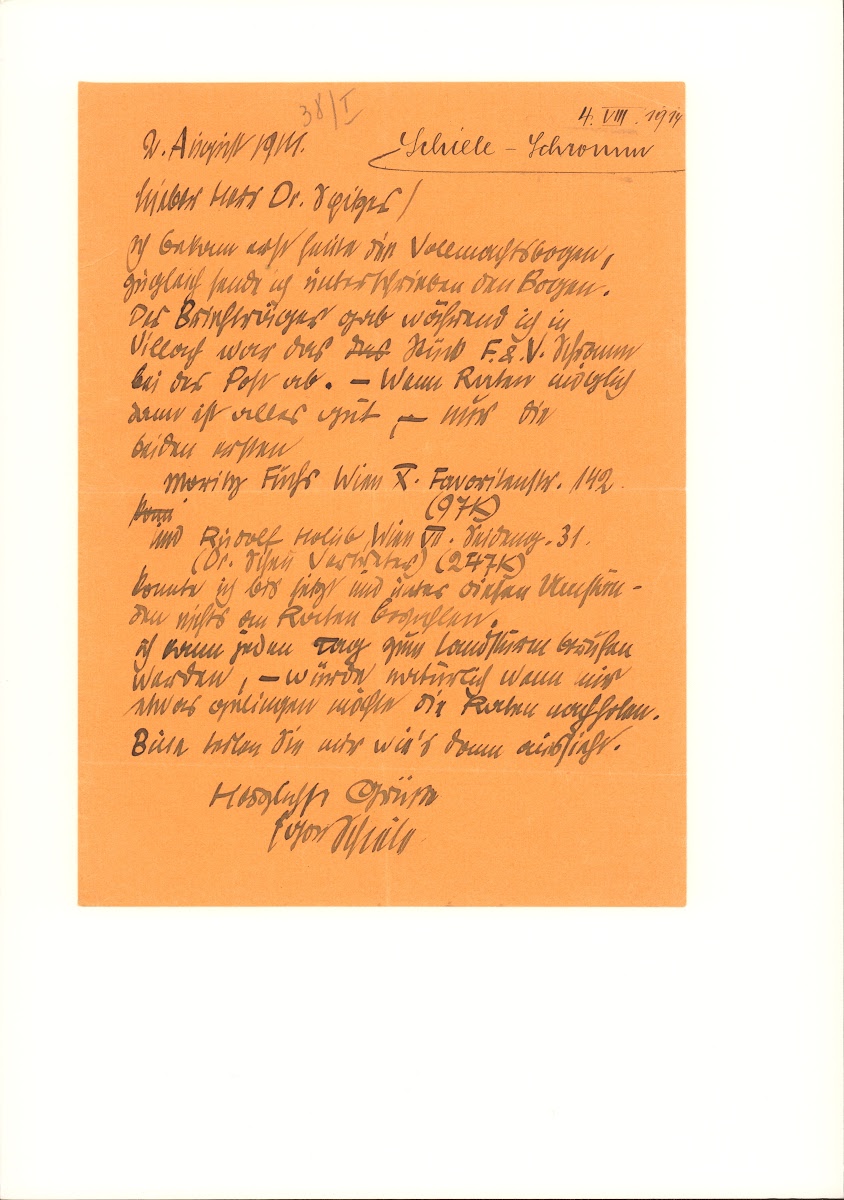 38/I
4. VIII. 1914
2. August 1914.
Schiele – Schramm
Lieber Herr Dr. Spitzer /
ich bekam erst heute den Vollmachtsbogen,
zugleich sende ich unterschrieben den Bogen.
Der Briefträger gab während ich in
Villach war das Das Stück F. & V. Schramm
bei der Post ab. – Wenn Raten möglich
dann ist alles gut, – nur die
beiden ersten
Moritz Fuchs Wien X. Favoritenstr. 142
(97K)
konn
und Rudolf Holib Wien VII. Seideng. 31.
(Dr. Schen Vertreter) (247K)
konnte ich bis jetzt und unter diesen Umstän-
den nichts an Raten bezahlen.
ich kann jeden Tag zum Landsturm berufen
werden, – würde natürlich wenn mir
etwas gelingen möchte die Raten nachholen.
Bitte teilen Sie mir wie's dann aussieht.
Herzlichste Grüße
Egon Schiele